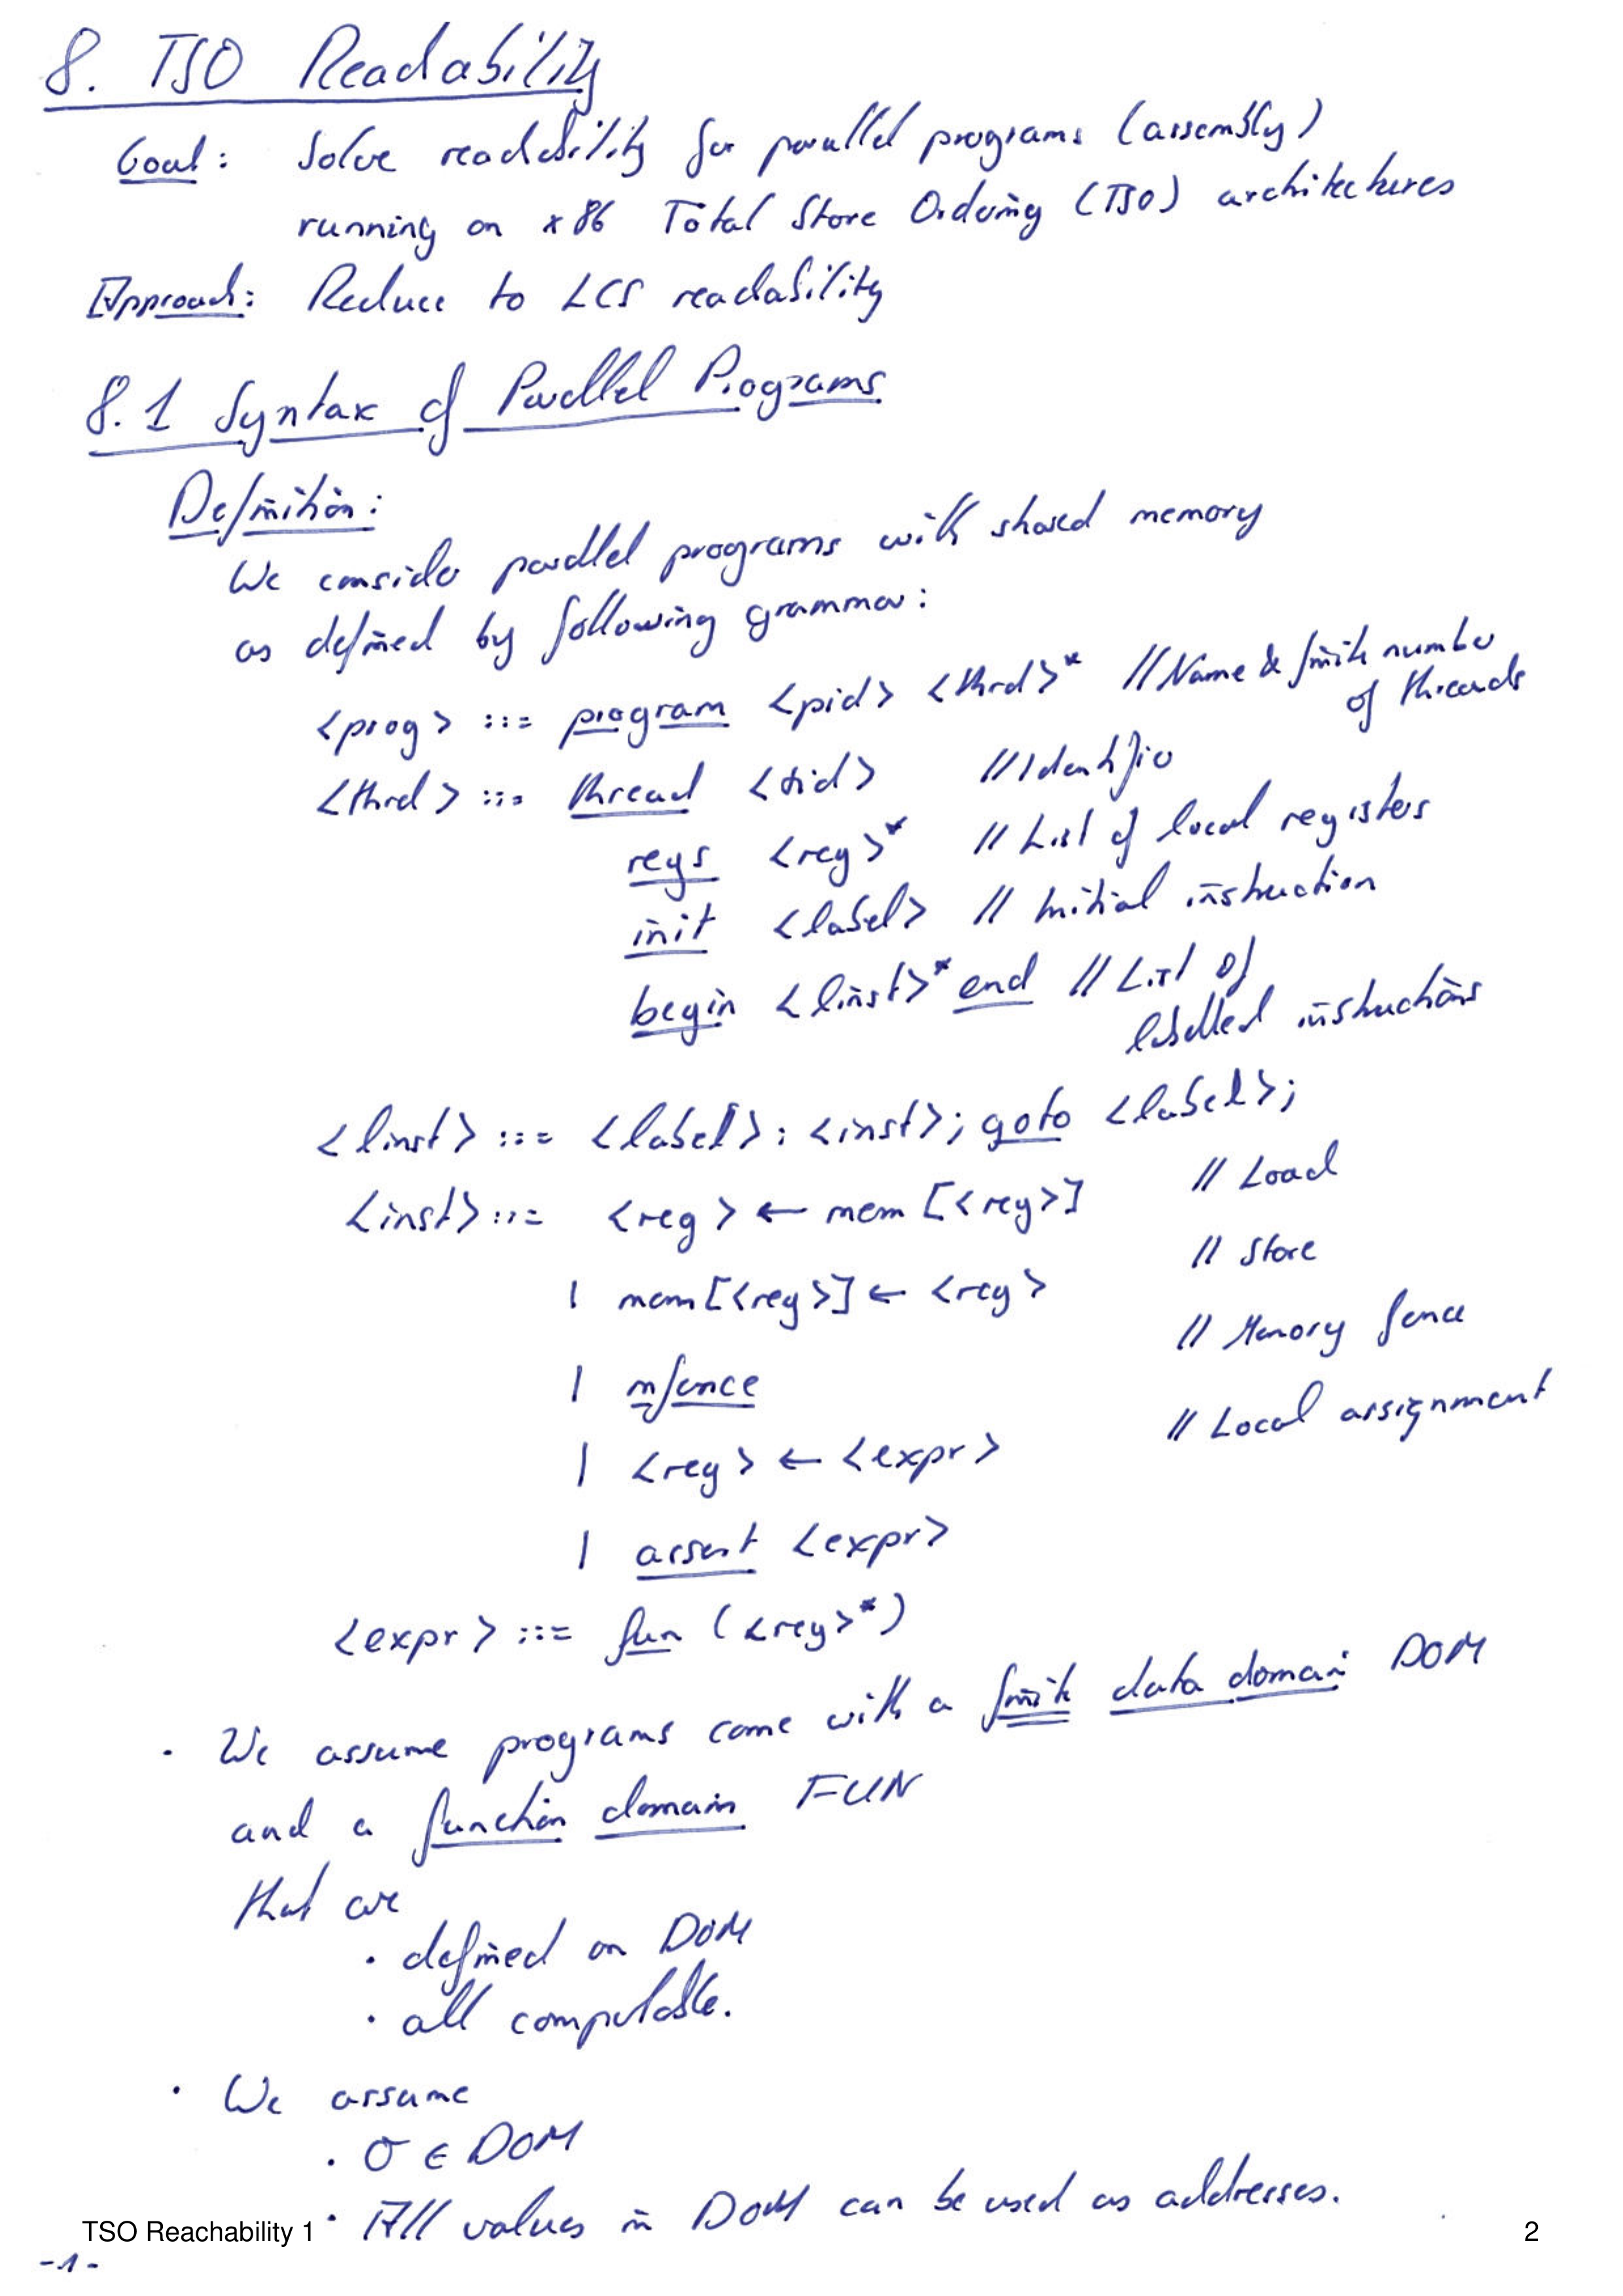 8. TSO Reachability
Goal: Solve reachability for parallel programs (assembly)
running on x86 Total Store Ordering (TSO) architectures
Approach: Reduce to LCS reachability
8.1 Syntax of Parallel Programs
Definition:
We consider parallel programs with shared memory
as defined by following grammar:
<prog> ::= program <pid> <thrd>* // Name & finite number
of threads
<thrd> ::= thread <tid> // Identifier
regs <reg>* // List of local registers
init <label> // Initial instruction
begin <linst>* end // List of
labelled instructions
<linst> ::= <label>: <inst>; goto <label>;
<inst> ::= <reg> ← mem [<reg>] // Load
| mem[<reg>] ← <reg> // Store
| mfence // Memory fence
| <reg> ← <expr> // Local assignment
| assert <expr>
<expr> ::= fun (<reg>*)
· We assume programs come with a finite data domain DOM
and a function domain FUN
that are
· defined on DOM
· all computable.
· We assume
· 0 ∈ DOM
· All values in DOM can be used as addresses.
TSO Reachability 1 2
-1-